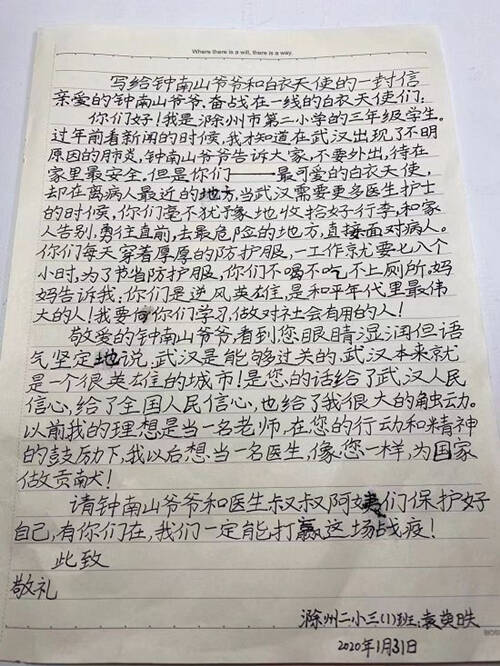 Where there is a will, there is a way.
写给钟南山爷爷和白衣天使的一封信
亲爱的钟南山爷爷,奋战在一线的白衣天使们:
你们好!我是滁州市第二小学的三年级学生。
过年前看新闻的时候,我才知道在武汉出现了不明
原因的肺炎,钟南山爷爷告诉大家,不要外出,待在
家里最安全,但是你们——最可爱的白衣天使,
却在离病人最近的地方,当武汉需要更多医生护士
的时候,你们毫不犹豫地收拾好行李,和家
人告别,勇往直前,去最危险的地方,直接面对病人。
你们每天穿着厚厚的防护服,一工作就要七八个
小时,为了节省防护服,你们不喝不吃,不上厕所,妈
妈告诉我:你们是逆风英雄,是和平年代里最伟
大的人!我要向你们学习,做对社会有用的人!
敬爱的钟南山爷爷,看到您眼睛湿润但语
气坚定地说,武汉是能够过关的,武汉本来就
是一个很英雄的城市!是您的话给了武汉人民
信心,给了全国人民信心,也给了我很大的触动。
以前我的理想是当一名老师,在您的行动和精神
的鼓励下,我以后想当一名医生,像您一样,为国家
做贡献!
请钟南山爷爷和医生叔叔阿姨们保护好
自己,有你们在,我们一定能打赢这场战疫!
此致
敬礼
滁州二小三(1)班:袁英昳
2020年1月31日